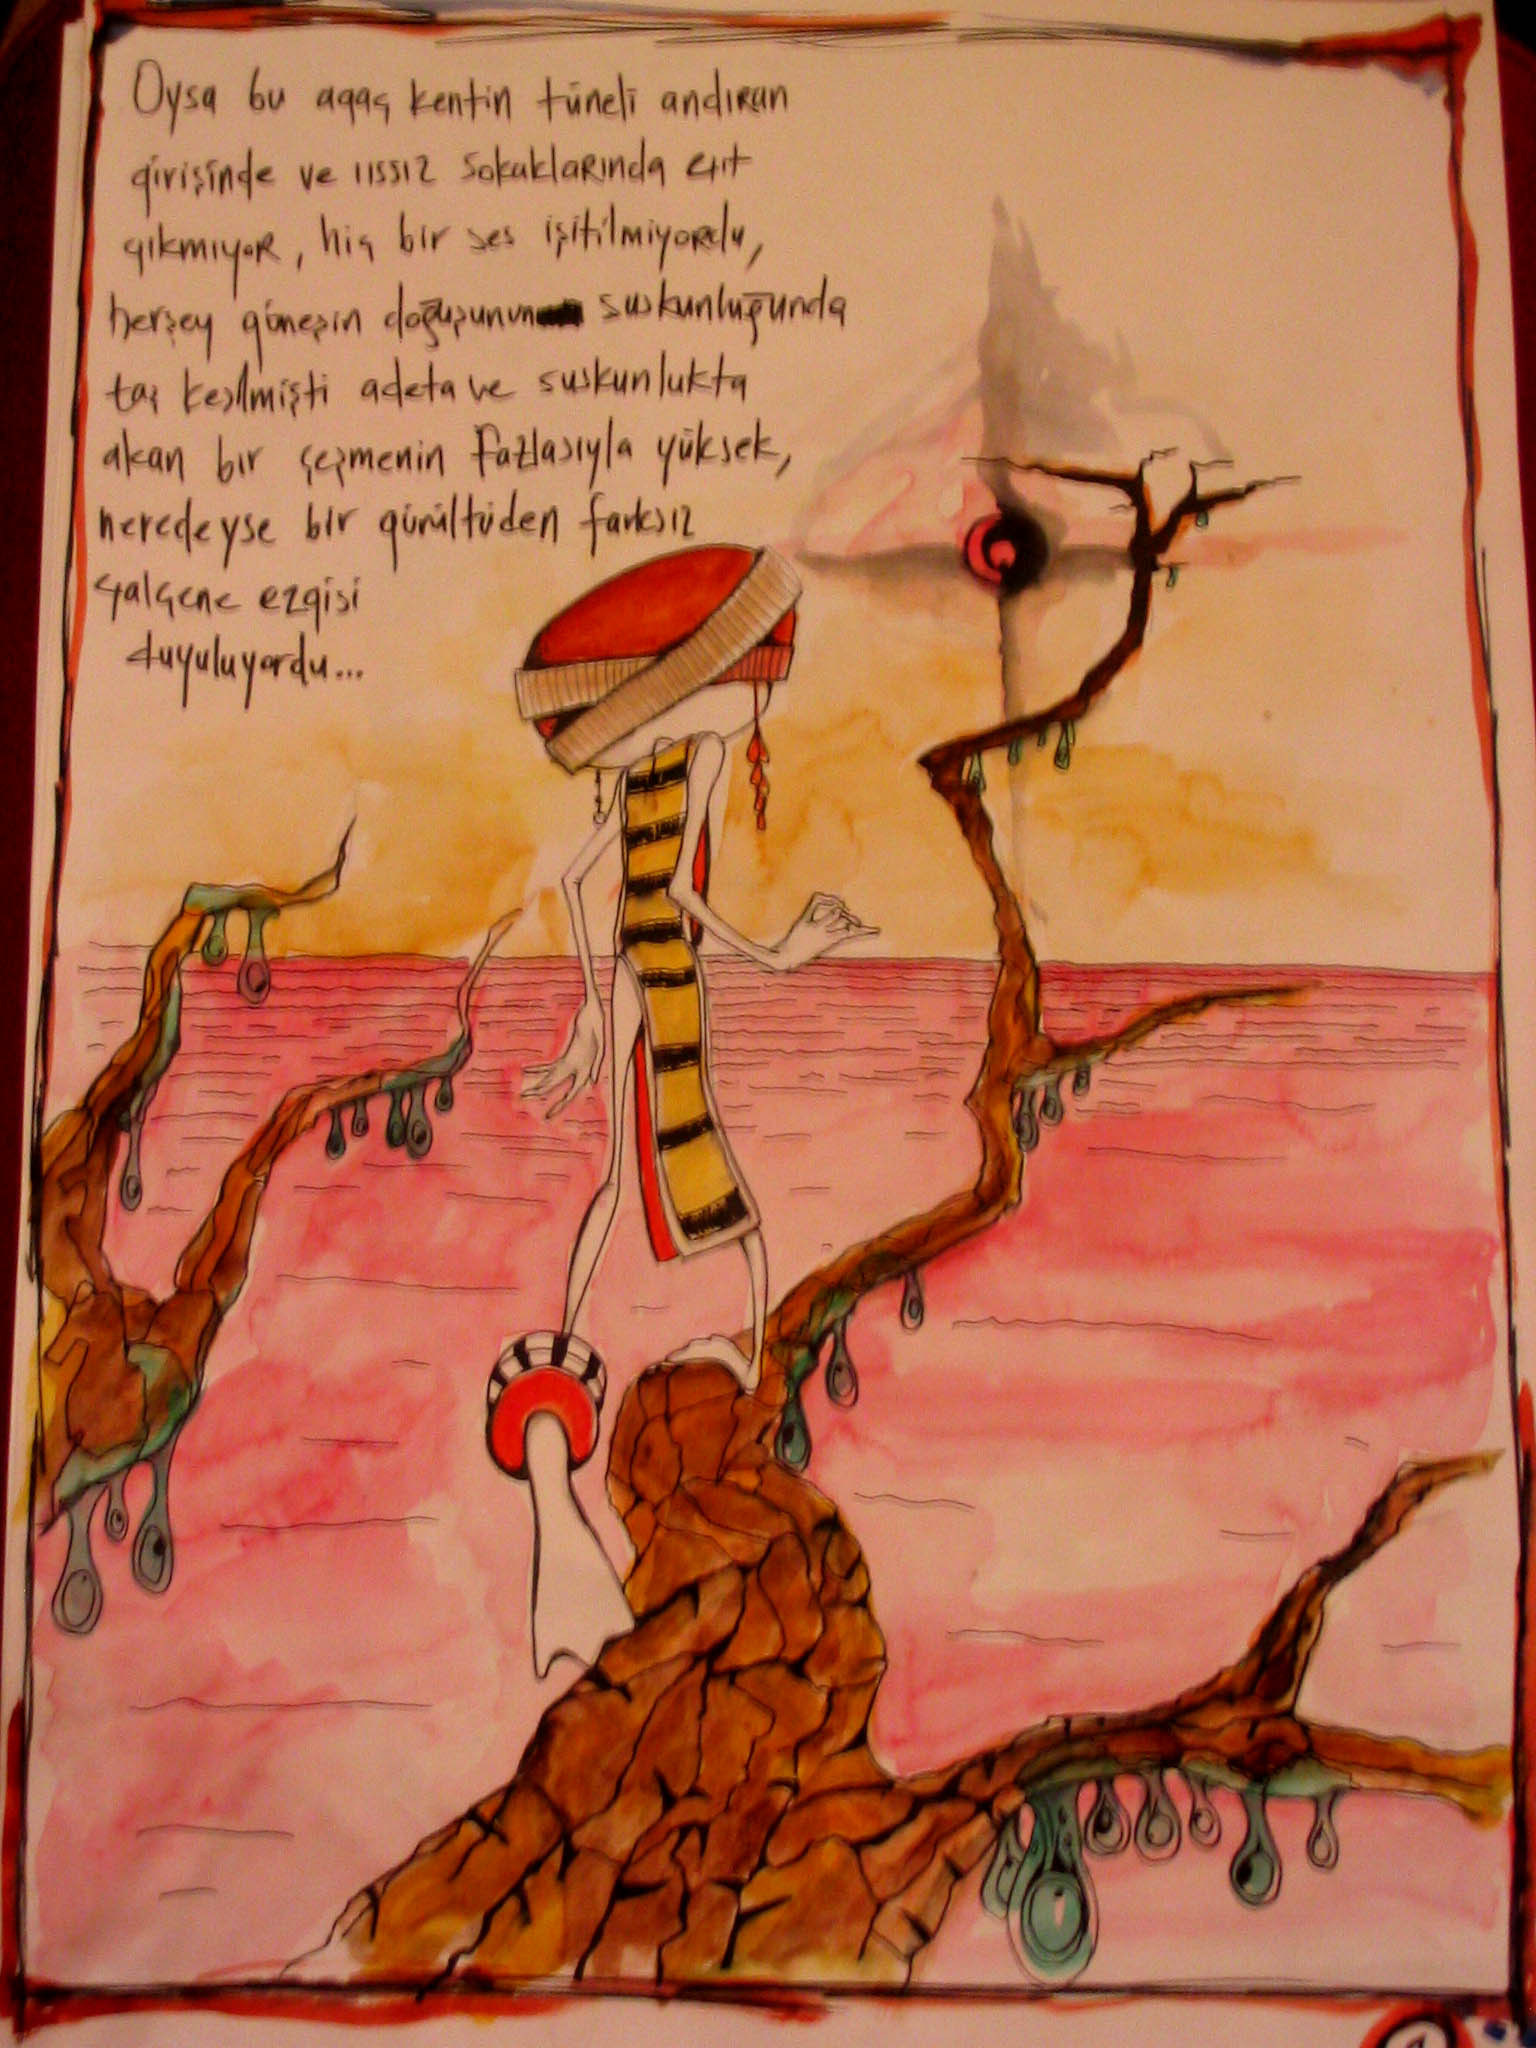 Oysa bu agaç kentin tüneli andıran
girişinde ve ıssız sokaklarında çıt
çıkmıyor, hiç bir ses işitilmiyordu,
herşey güneşin doğuşunun suskunluğunda
taş kesilmişti adeta ve suskunlukta
akan bir çeşmenin fazlasıyla yüksek,
neredeyse bir gürültüden farksız
çalçene ezgisi
duyuluyordu...